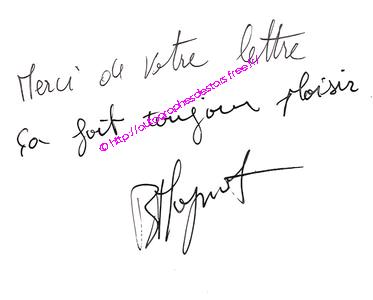 Merci de votre lettre
ça fait toujours plaisir.
© http://autographesdestars.free.fr/